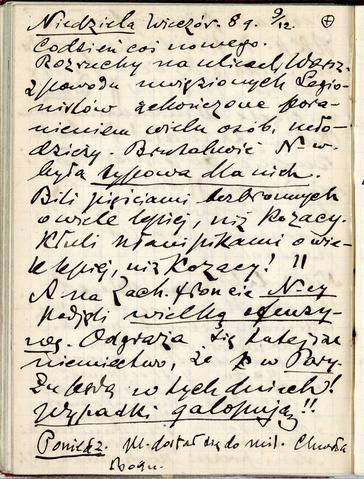 Niedziela Wieczór. 8 g. 9/12.
Codzień coś nowego.
Rozruchy na ulicach Warsz.
z powodu uwięzionych Legio-
nistów zakończone pora-
nieniem wielu osób, mło-
dzieży. Brutalność N-w
była typowa dla nich.
Bili pięściami bezbronnych
o wiele lepiej, niż Kozacy.
Kłuli pianipikami o wie-
le lepiej, niż Kozacy! !!
A na Zach. froncie N-cy
podjęli wielką ofenzy-
wę. Odgraża się tutejsze
niemiectwo, że w Pary-
żu będą w tych dniach!
Wypadki galopują!!
Poniedz. M. dostał się do mil. Chwała
Bogu.